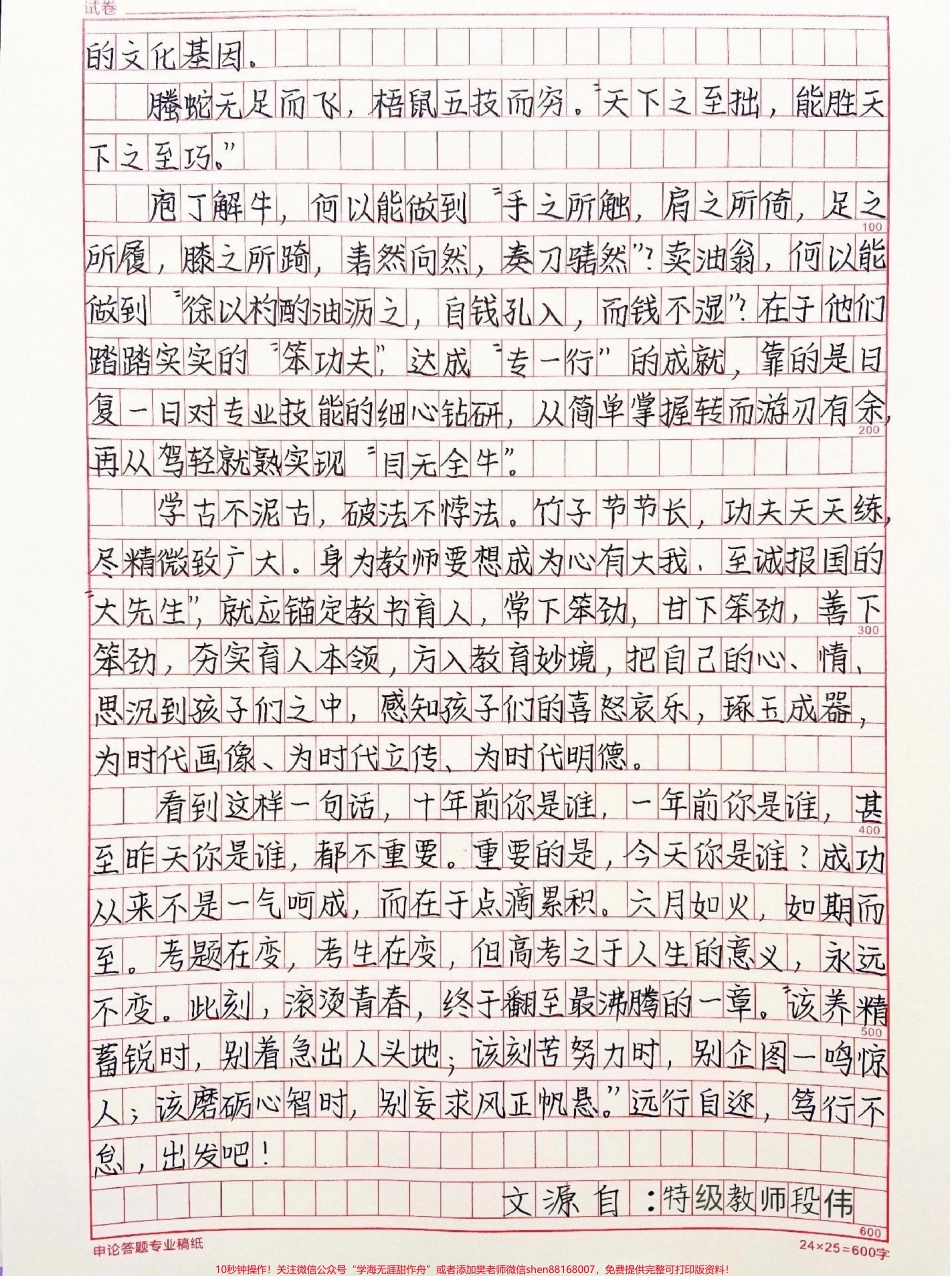 试卷
的文化基因。
螣蛇无足而飞，梧鼠五技而穷。“天下之至拙，能胜天
下之至巧。”
庖丁解牛，何以能做到“手之所触，肩之所倚，足之
100
所履，膝之所踦，砉然向然，奏刀騞然”？卖油翁，何以能
做到“徐以杓酌油沥之，自钱孔入，而钱不湿”？在于他们
踏踏实实的“笨功夫”，达成“专一行”的成就，靠的是日
复一日对专业技能的细心钻研，从简单掌握转而游刃有余，
200
再从驾轻就熟实现“目无全牛”。
学古不泥古，破法不悖法。竹子节节长，功夫天天练，
尽精微致广大。身为教师要想成为心有大我、至诚报国的
“大先生”，就应锚定教书育人，常下笨劲，甘下笨劲，善下
300
笨劲，夯实育人本领，方入教育妙境，把自己的心、情、
思沉到孩子们之中，感知孩子们的喜怒哀乐，琢玉成器，
为时代画像、为时代立传、为时代明德。
看到这样一句话，十年前你是谁，一年前你是谁，甚
400
至昨天你是谁，都不重要。重要的是，今天你是谁？成功
从来不是一气呵成，而在于点滴累积。六月如火，如期而
至。考题在变，考生在变，但高考之于人生的意义，永远
不变。此刻，滚烫青春，终于翻至最沸腾的一章。“该养精
500
蓄锐时，别着急出人头地；该刻苦努力时，别企图一鸣惊
人；该磨砺心智时，别妄求风正帆悬。”远行自迩，笃行不
怠，出发吧！
文源自：特级教师段伟
600
申论答题专业稿纸
24×25=600字
10秒钟操作！关注微信公众号“学海无涯甜作舟”或者添加樊老师微信shen88168007，免费提供完整可打印版资料！